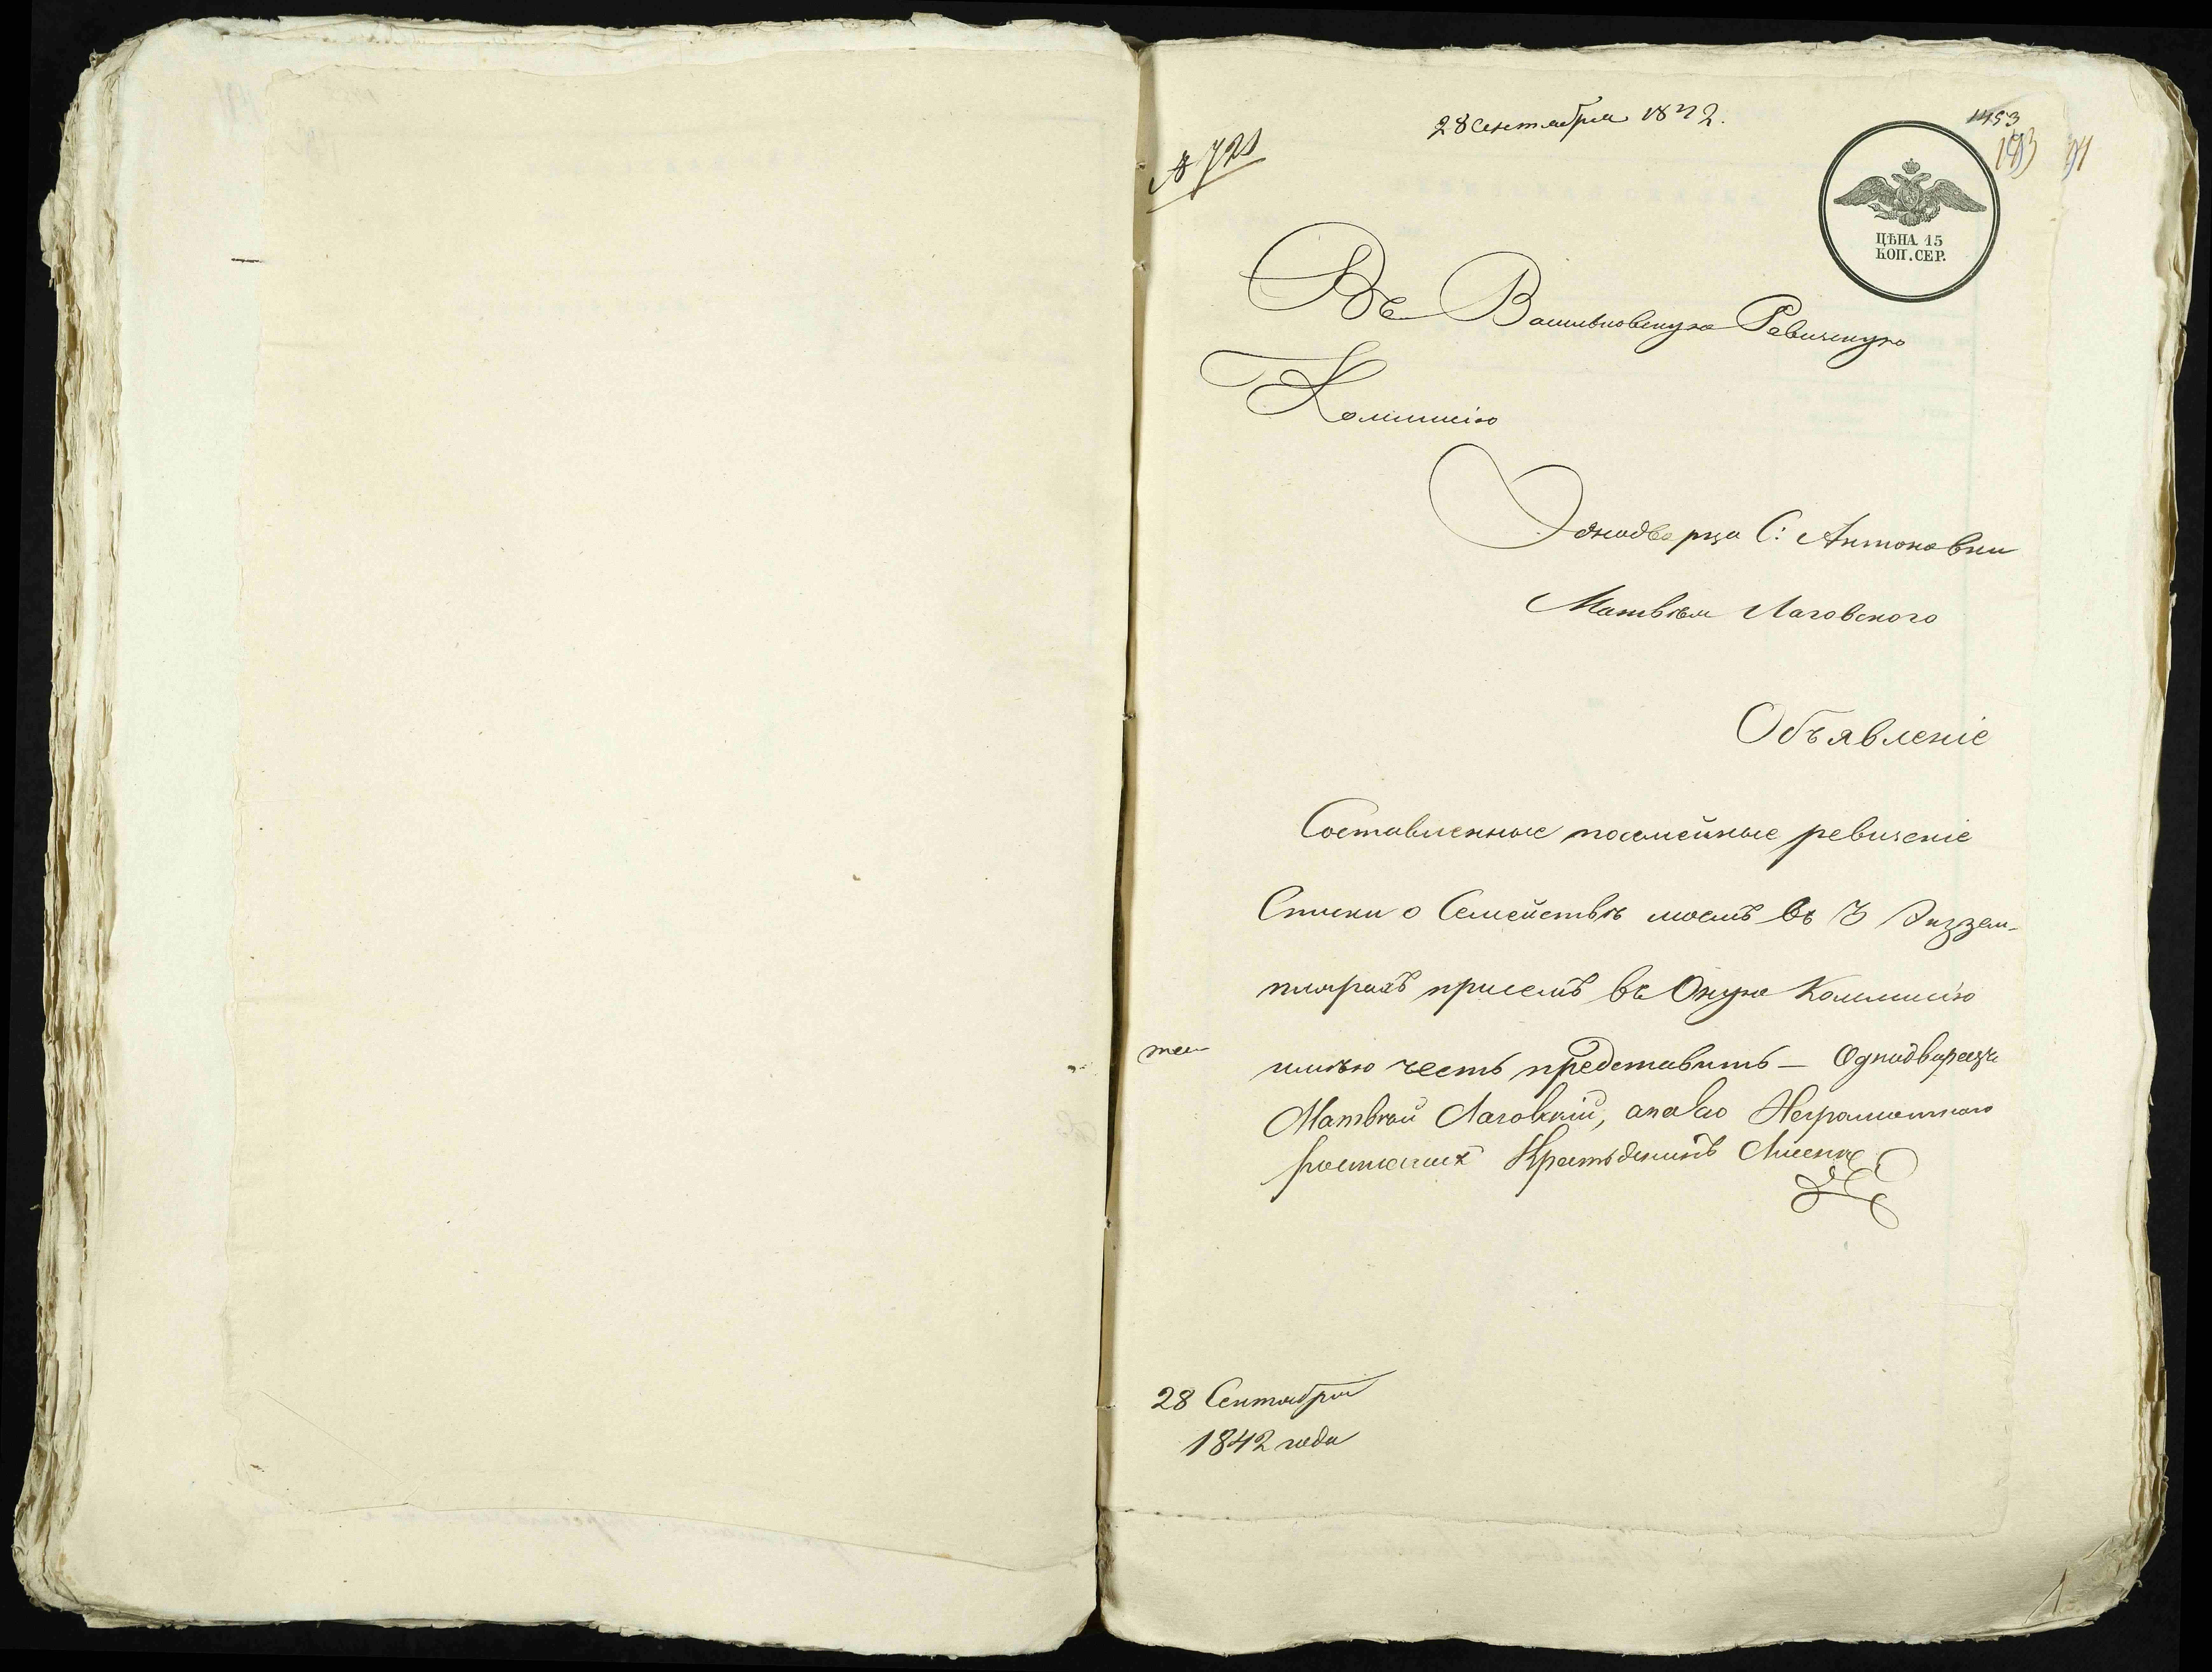 28 Сентября 1842.
№ 721
1453
193 91
ЦѢНА 15
КОП. СЕР.
Въ Васильковскую Ревизскую
Коммисію
Однодворца С: Антоновки
Матвѣя Лаговского
Объявленіе
Составленные посемейные ревизскіе
Списки о Семействѣ моемъ въ 3 Экзем-
плярахъ присемъ въ Оную Коммисію
имѣю честь представить — Однодворецъ
Матвѣй Лаговскій, а по его Неграмотного
росписался Лисенко
28 Сентября
1842 года
1